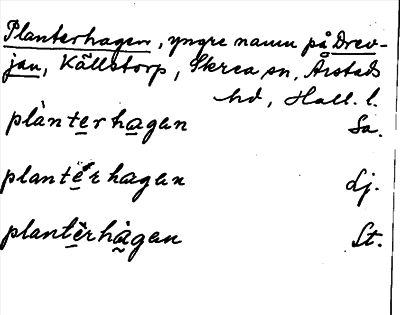 Planterhagen, yngre namn på Drev-
jan, Källstorp, Skrea sn, Årstads
hd, Hall. l.
plànterhagen Sa.
plantérhagen Lj.
plantèrhàgen St.